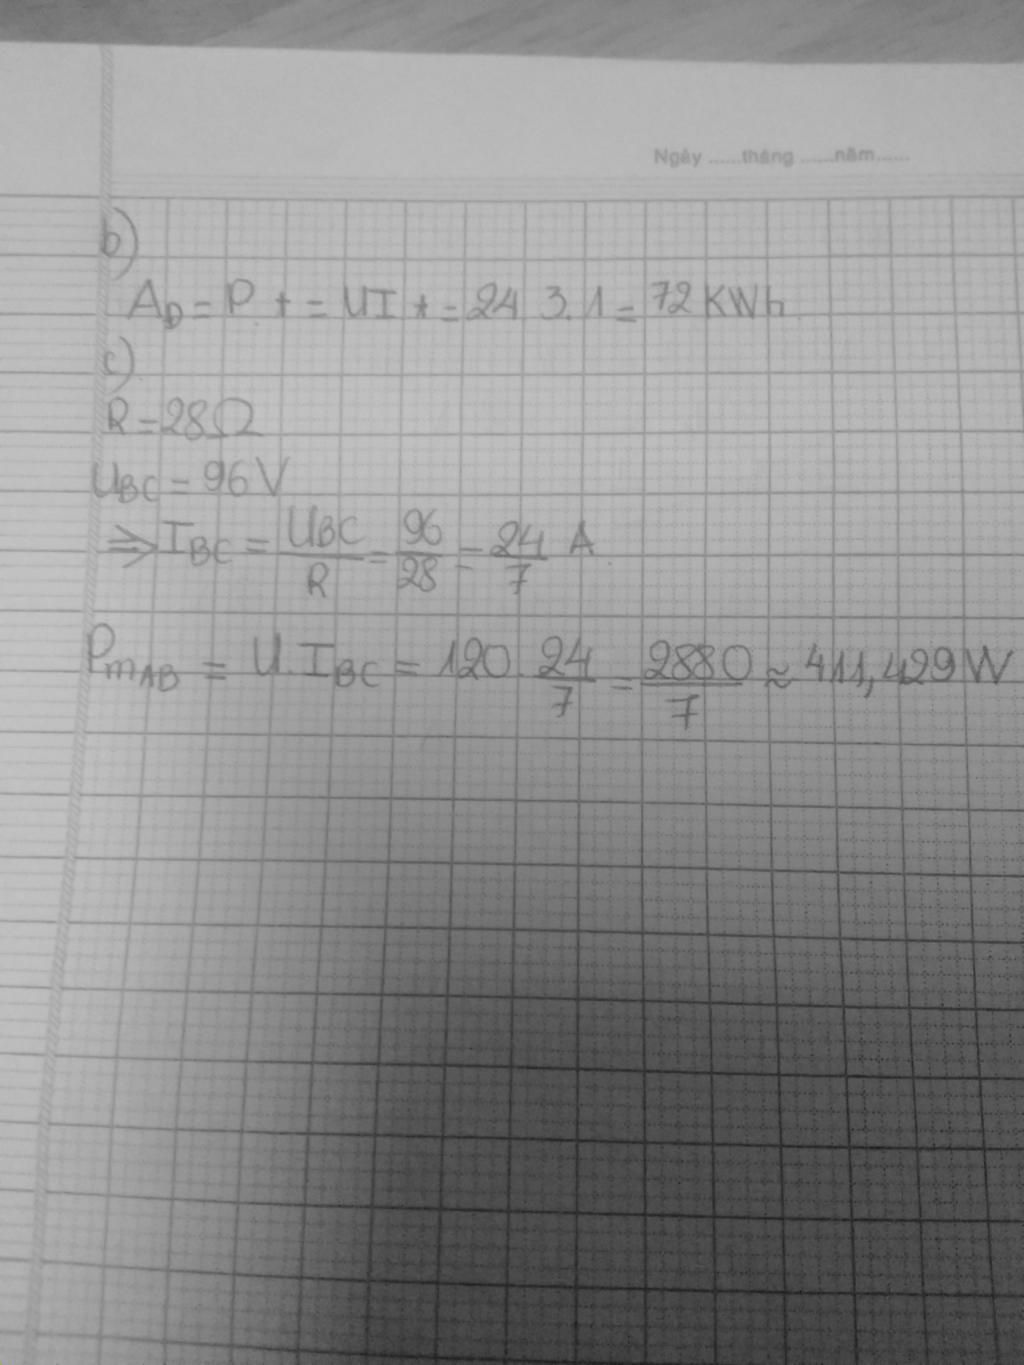 Ngày ......tháng ......năm......
b)
A_D = P t = UI t = 24 3.1 = 72 KWh
c)
R = 28Ω
U_BC = 96 V
⇒ I_BC = U_BC/R = 96/28 = 24/7 A
P_mAB = U.I_BC = 120.24/7 = 2880/7 ≈ 411,429 W